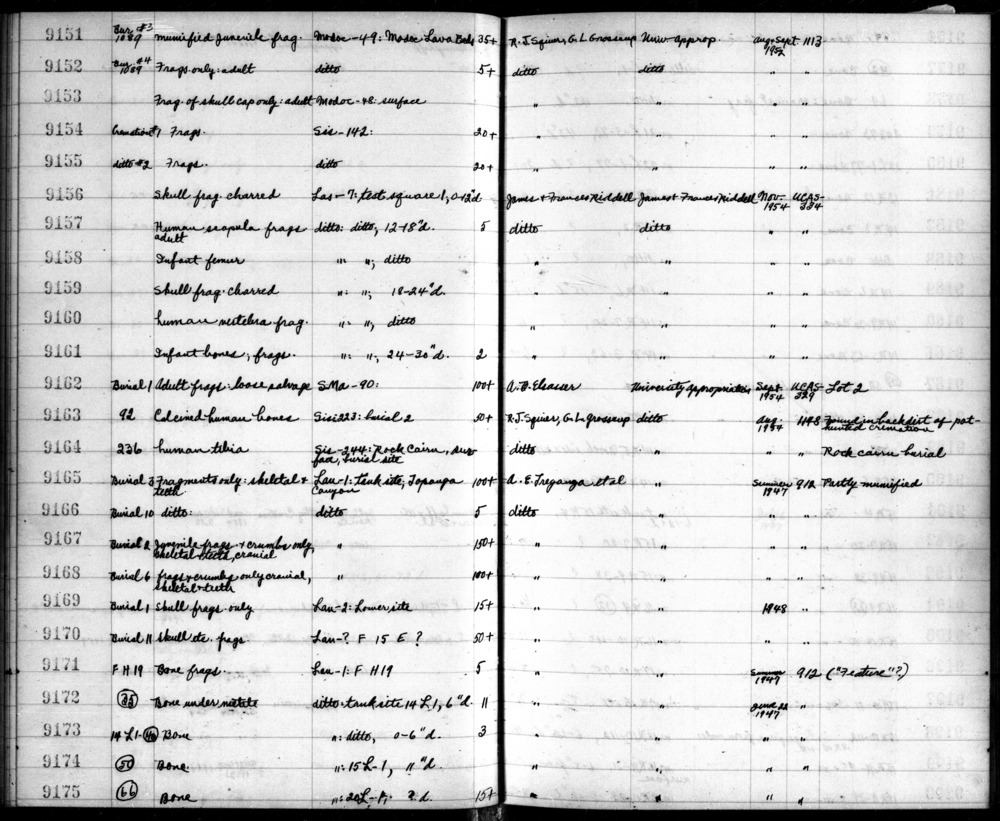 9151 Bur. #3 1089 mumified juvenile frag. Modoc-49: Modoc Lava Beds 35+ R.J. Squier, G.L. Grosscup Univ. Approp. Aug-Sept 1952 1113
9152 Bur. #4 1089 Frags only: adult ditto 5+ ditto ditto " "
9153 Frag. of skull cap only: adult Modoc-48: surface " " " "
9154 Cremation #1 Frags. Sis-142: 20+ " " " "
9155 ditto #2 Frags. ditto 20+ " " " "
9156 Skull frag. charred Las-7: test square 1, 0-12"d James + Frances Riddell James + Frances Riddell Nov- 1954 UCAS-334
9157 Human scapula frags adult ditto: ditto, 12-18"d. 5 ditto ditto " "
9158 Infant femur " "; ditto " " " "
9159 Skull frag. charred ": "; 18-24"d. " " " "
9160 human vertebra frag. ": "; ditto " " " "
9161 Infant bones, frags. ": ", 24-30"d. 2 " " " "
9162 Burial 1 Adult frags: loose salvage SMa-90: 100+ A.B. Elsasser University appropriation Sept 1954 UCAS-329 Lot 2
9163 92 Calcined human bones Sis 223: burial 2 50+ R.J. Squier, G.L. Grosscup ditto Aug. 1954 1198 Found in backdirt of pot-hunted cremation
9164 236 human tibia Sis-244: Rock Cairn, surface, burial site ditto " " " Rock cairn burial
9165 Burial 3 Fragments only: skeletal + teeth Lan-1: tank site, Topanga Canyon 100+ A. E. Treganza et al " Summer 1947 912 Partly mumified
9166 Burial 10 ditto: ditto 5 ditto " " "
9167 Burial 2 Juvenile frags. + crumbs only, skeletal + teeth, cranial " 150+ " " " "
9168 Burial 6 frags + crumbs only cranial, skeletal + teeth " 100+ " " " "
9169 Burial 1 Skull frags. only Lan-2: Lower site 15+ " " 1948 "
9170 Burial 11 skull etc. frags Lan-? F 15 E ? 50+ " " " "
9171 F H 19 Bone frags. Lan-1: F H19 5 " " Summer 1947 912 ("Feature"?)
9172 35 Bone under metate ditto: tank site 14 L 1, 6"d. 11 " " June 22 1947 "
9173 14 L1- Bone ": ditto, 0-6"d. 3 " " " "
9174 50 Bone ": 15 L-1, " "d. " " " "
9175 66 Bone ": 20 L-1; ? d. 15+ " " " "